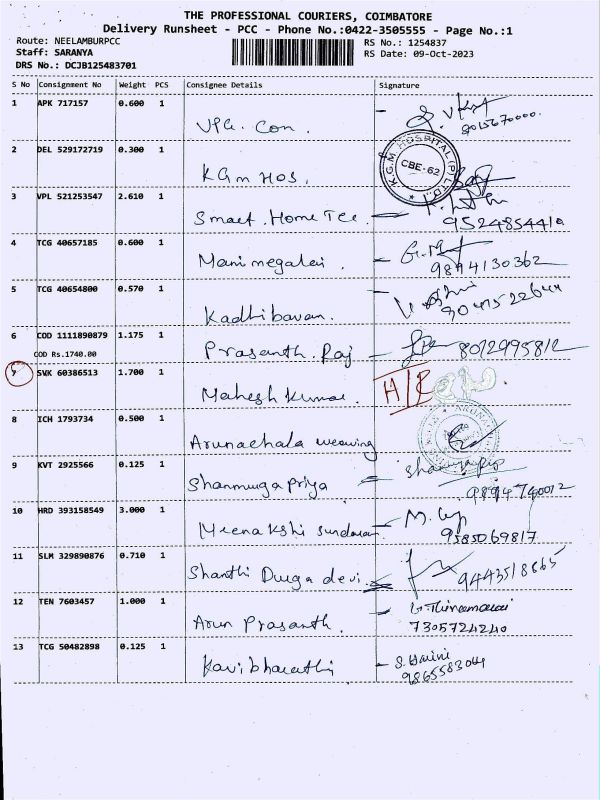 THE PROFESSIONAL COURIERS, COIMBATORE
Delivery Runsheet - PCC - Phone No.:0422-3505555 - Page No.:1
Route: NEELAMBURPCC RS No.: 1254837
Staff: SARANYA RS Date: 09-Oct-2023
DRS No.: DCJB125483701
S No Consignment No Weight PCS Consignee Details Signature
1 APK 717157 0.600 1
VPG. Con.
2 DEL 529172719 0.300 1
K.G.M HOSPITAL (P) LTD.
CBE-62
KGM HOS.
3 VPL 521253547 2.610 1
Smart. Home Tec. 9524854410
4 TCG 40657185 0.600 1
Manimegalai. 9894130362
5 TCG 40654800 0.570 1
Kadhibavan.
6 COD 1111890879 1.175 1
Prasanth. Raj 8012995812
COD Rs.1740.00
7 SVK 60386513 1.700 1
Mahesh Kumar.
8 ICH 1793734 0.500 1
Arunachala weaving
9 KVT 2925566 0.125 1
Shanmuga Priya 9894740012
10 HRD 393158549 3.000 1
Meenakshi Sundaram 9585069817
11 SLM 329890876 0.710 1
Shanthi Durga devi. 9443518665
12 TEN 7603457 1.000 1
Arun Prasanth. 7305724240
13 TCG 50482898 0.125 1
Kavibharathi S. Harini
9865583044